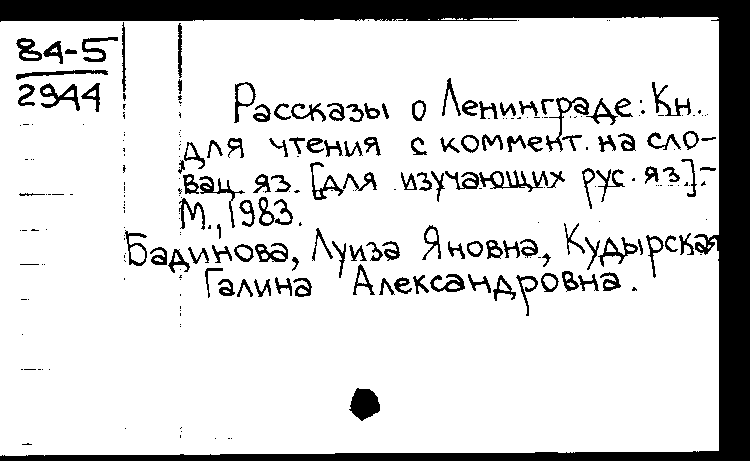 84-5
2944
Рассказы о Ленинграде: Кн.
для чтения с коммент. на сло-
вац. яз. [для изучающих рус. яз.].-
М., 1983.
Бадинова, Луиза Яновна, Кудырская
Галина Александровна.